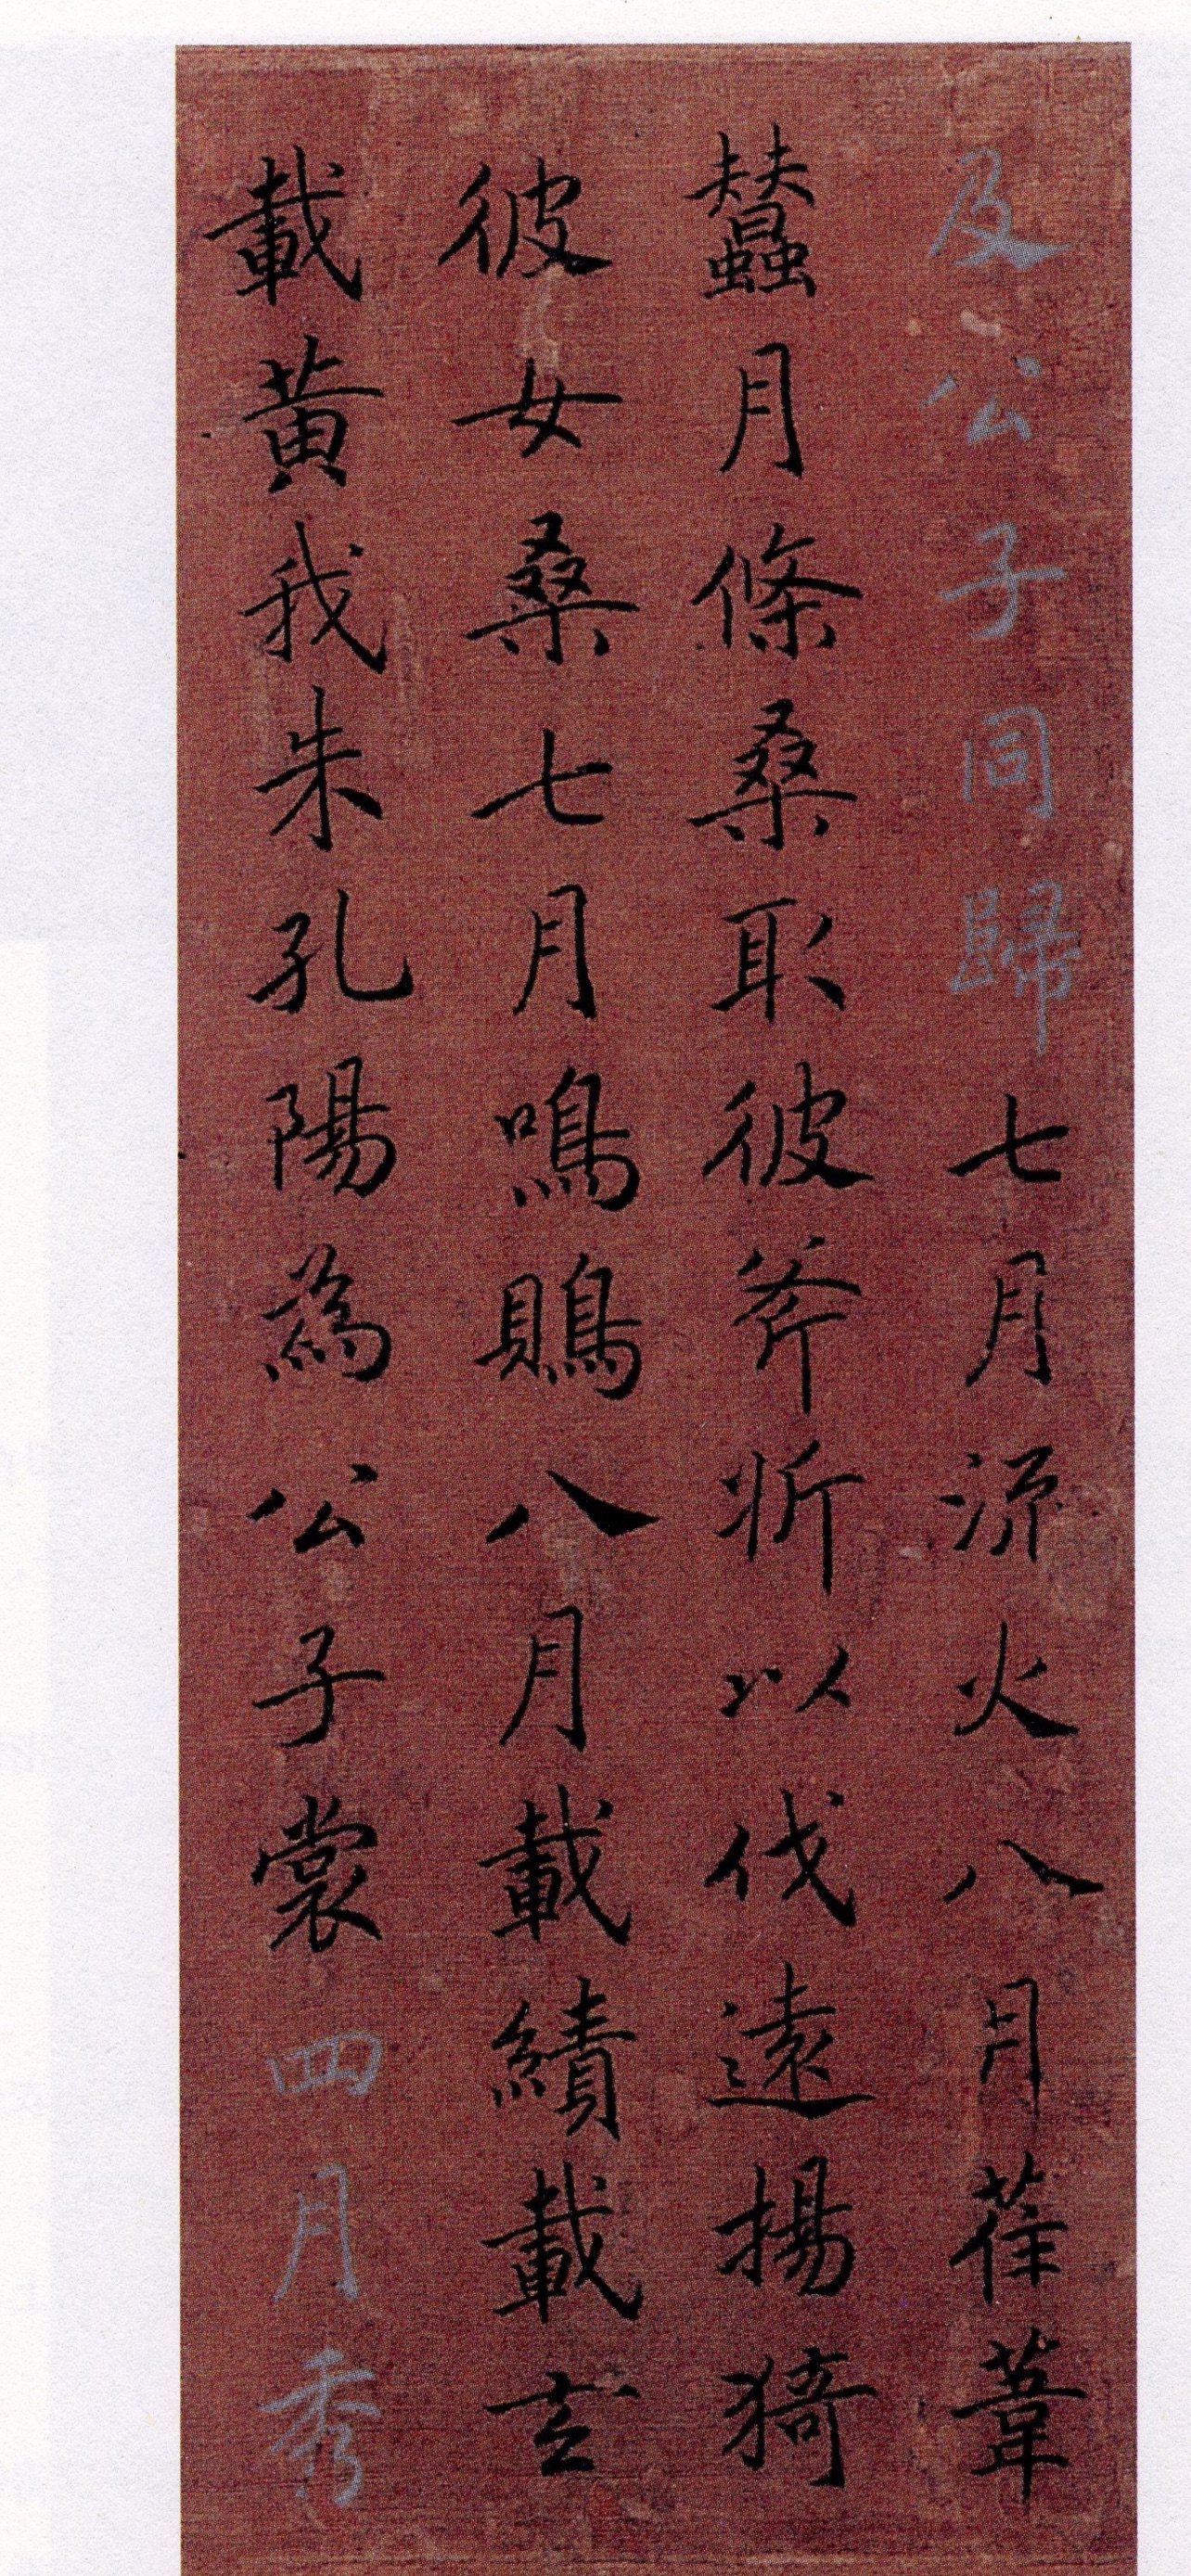 及公子同歸七月流火八月萑葦
蠶月條桑取彼斧斨以伐遠揚猗
彼女桑七月鳴鵙八月載績載玄
載黃我朱孔陽為公子裳四月秀